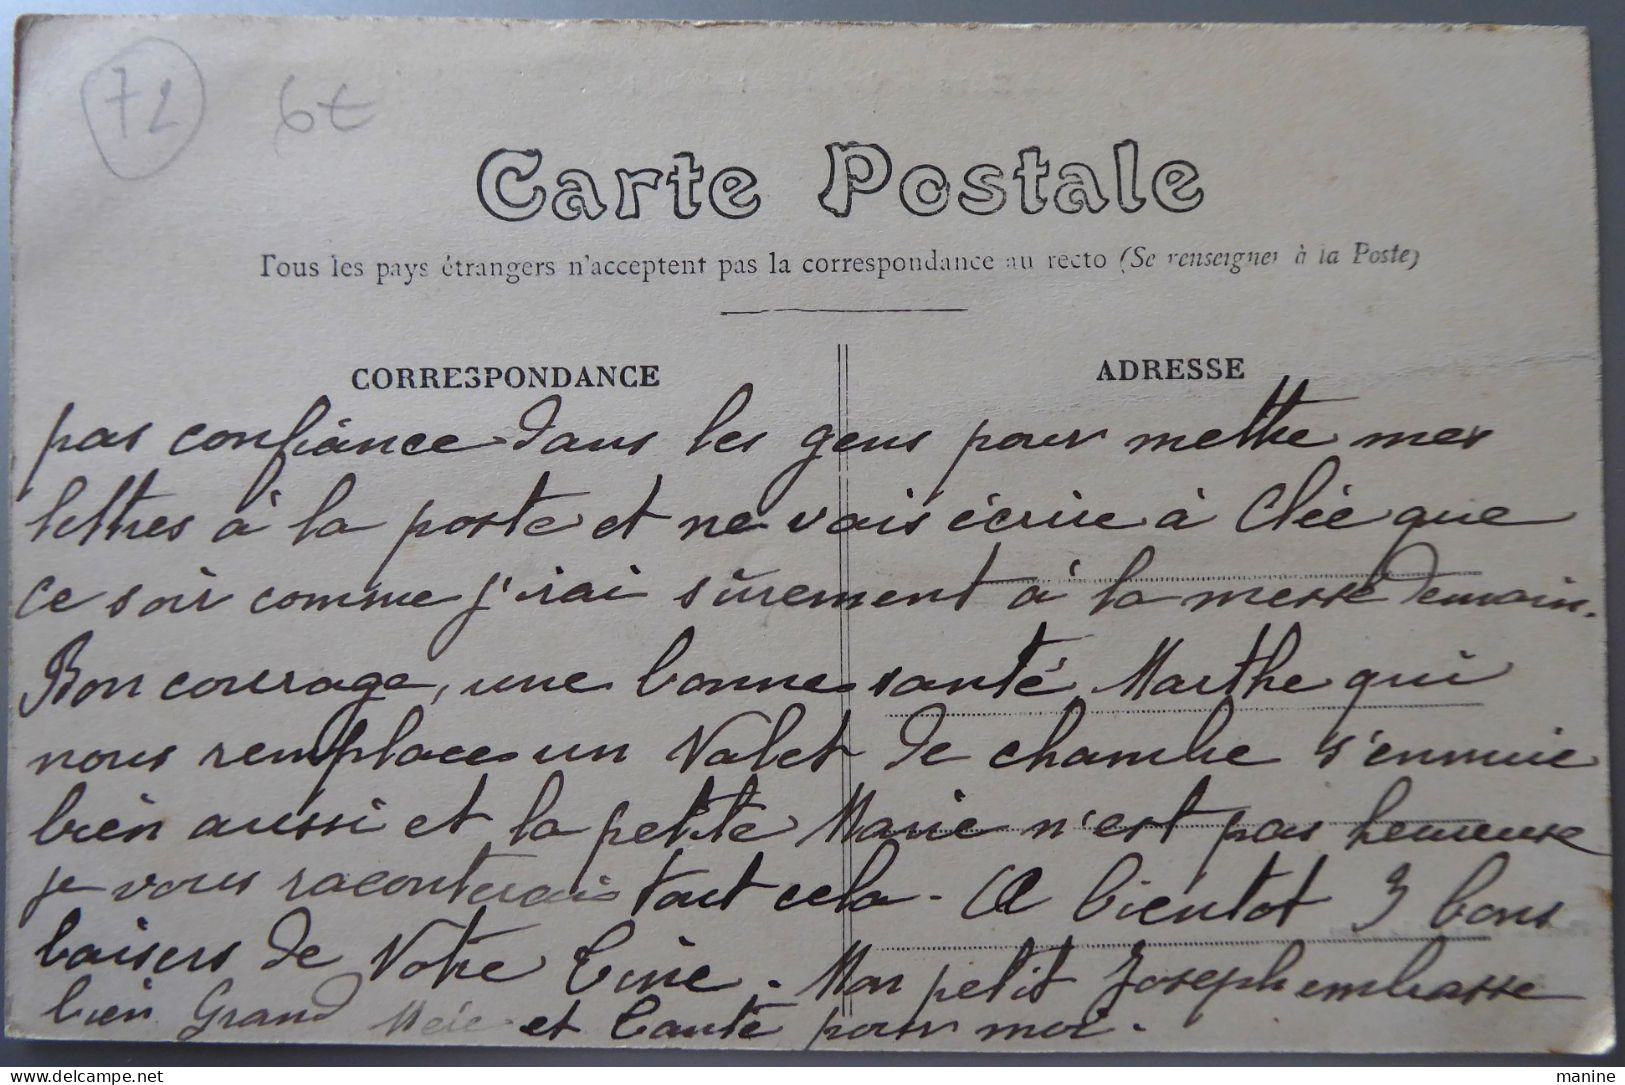 72 6€
Carte Postale
Tous les pays étrangers n'acceptent pas la correspondance au recto (Se renseigner à la Poste)
CORRESPONDANCE
ADRESSE
pas confiance dans les gens pour mettre mes
lettres à la poste et ne vais écrire à Clée que
ce soir comme j'irai sûrement à la messe demain.
Bon courage, une bonne santé Marthe qui
nous remplace un Valet de chambre s'ennuie
bien aussi et la petite Marie n'est pas heureuse
je vous raconterais tout cela - A bientot 3 bons
baisers de Votre Tine. Mon petit Joseph embrasse
bien Grand Mère et Tante pour moi.
manine